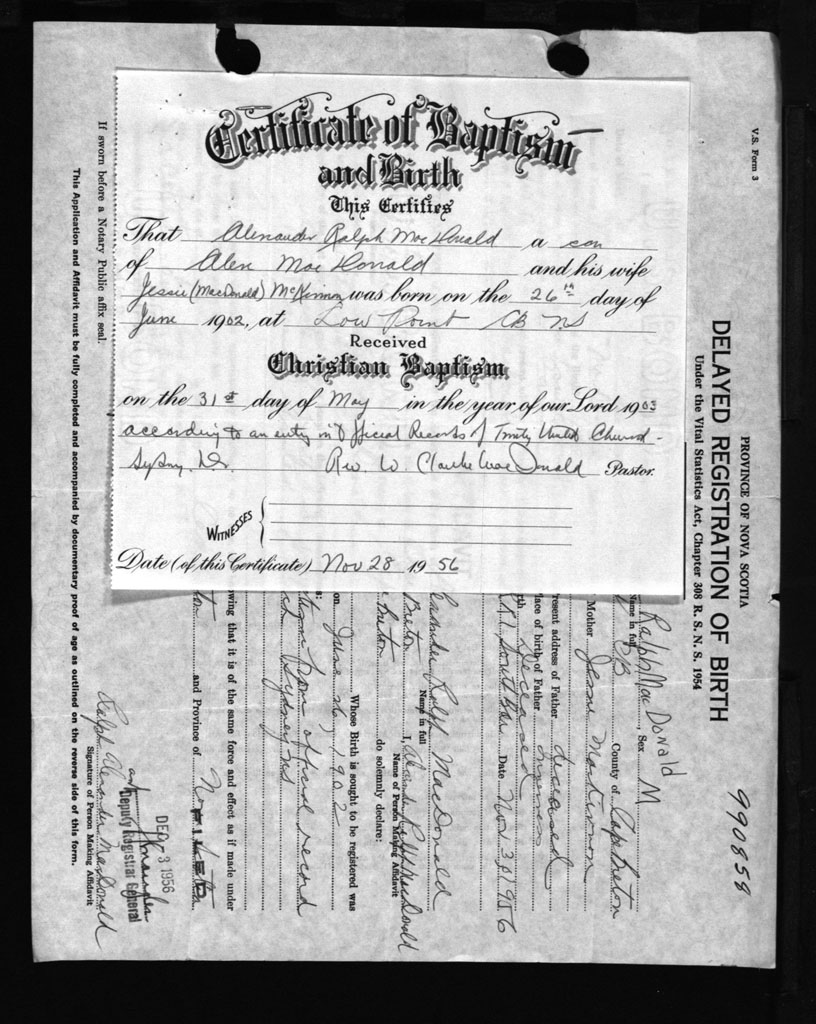 Certificate of Baptism
and Birth
This Certifies
That Alexander Ralph MacDonald a son
of Alex MacDonald and his wife
Jessie (MacDonald) McKinnon was born on the 26th day of
June 1902, at Low Point CB NS
Received
Christian Baptism
on the 31st day of May in the year of our Lord 1903
according to an entry in Official Records of Trinity United Church -
Sydney, N.S. Rev. W. Clarke MacDonald Pastor.
WITNESSES
Date (of this Certificate) Nov 28 1956
V.S. Form 3
990858
PROVINCE OF NOVA SCOTIA
DELAYED REGISTRATION OF BIRTH
Under the Vital Statistics Act, Chapter 308 R. S. N. S. 1954
Name in full Ralph MacDonald, Sex M
County of Cape Breton
Mother Jessie
resent address of Father deceased
lace of birth of Father
deceased
Date Nov 30 1956
Ralph MacDonald
Name in full
Breton I, MacDonald
Name of Person Making Affidavit
Breton do solemnly declare:
Whose Birth is sought to be registered was
on June 26, 1902
from official record
Sydney NS
wing that it is of the same force and effect as if made under
and Province of
FILED
DEC 3 1956
Deputy Registrar General
Ralph Alexander MacDonald
Signature of Person Making Affidavit
If sworn before a Notary Public affix seal.
This Application and Affidavit must be fully completed and accompanied by documentary proof of age as outlined on the reverse side of this form.